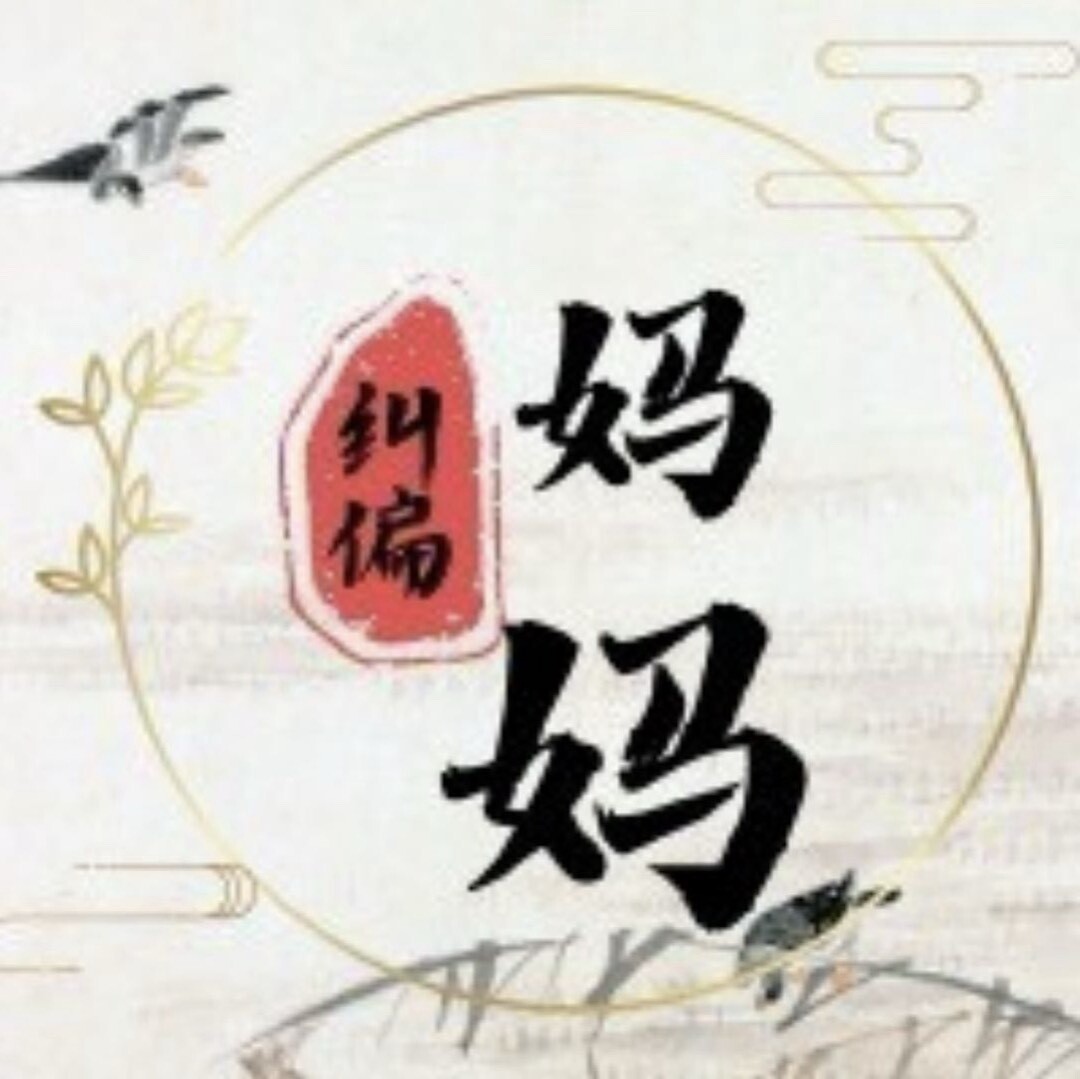 妈妈
纠偏